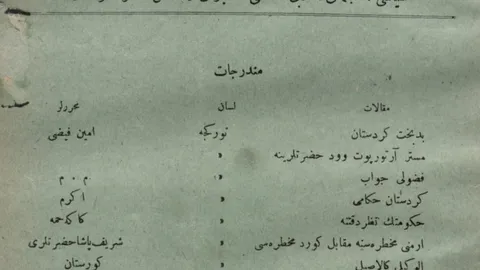 مندرجات
مقالات لسانى محررلر
بدبخت كردستان توركجه امين فيضى
مستر آرتور پوت وود حضرتلرينه »
فضولى جواب » م . م
كردستان حكامى » اكرم
حكومتك نظر دقتنه » كاكه حمه
ارمنى مخطره سنه مقابل كورد مخطره سى » شريف پاشا حضرتلرى
» كورستان